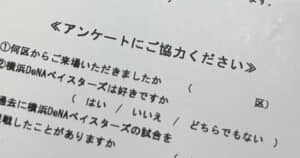 ます。
≪アンケートにご協力ください≫
①何区からご来場いただきましたか
( 区)
②横浜DeNAベイスターズは好きですか
( はい / いいえ / どちらでもない )
過去に横浜DeNAベイスターズの試合を
戦したことがありますか
(